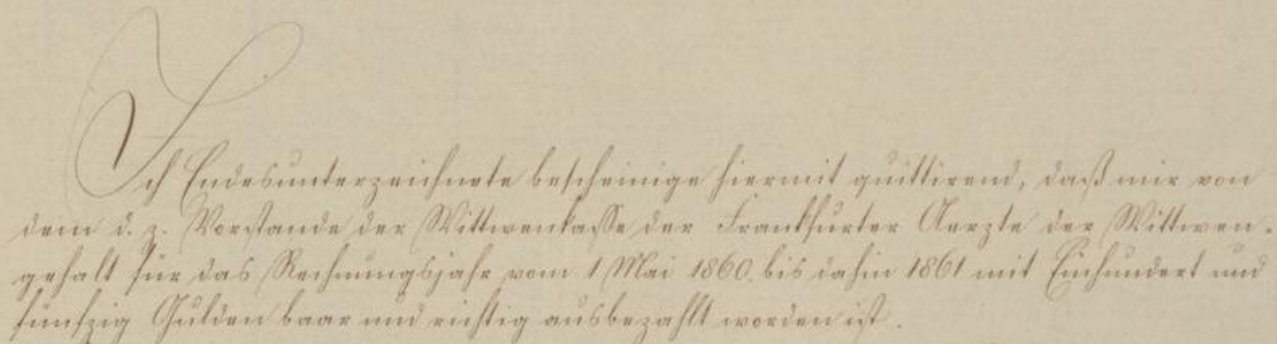 Ich Endesunterzeichnete bescheinige hiermit quittirend, daß mir von
dem d. z. Vorstande der Wittwenkasse der Frankfurter Aerzte der Wittwen-
gehalt für das Rechnungsjahr vom 1 Mai 1860. bis dahin 1861 mit Einhundert und
fünfzig Gulden baar und richtig ausbezahlt worden ist.